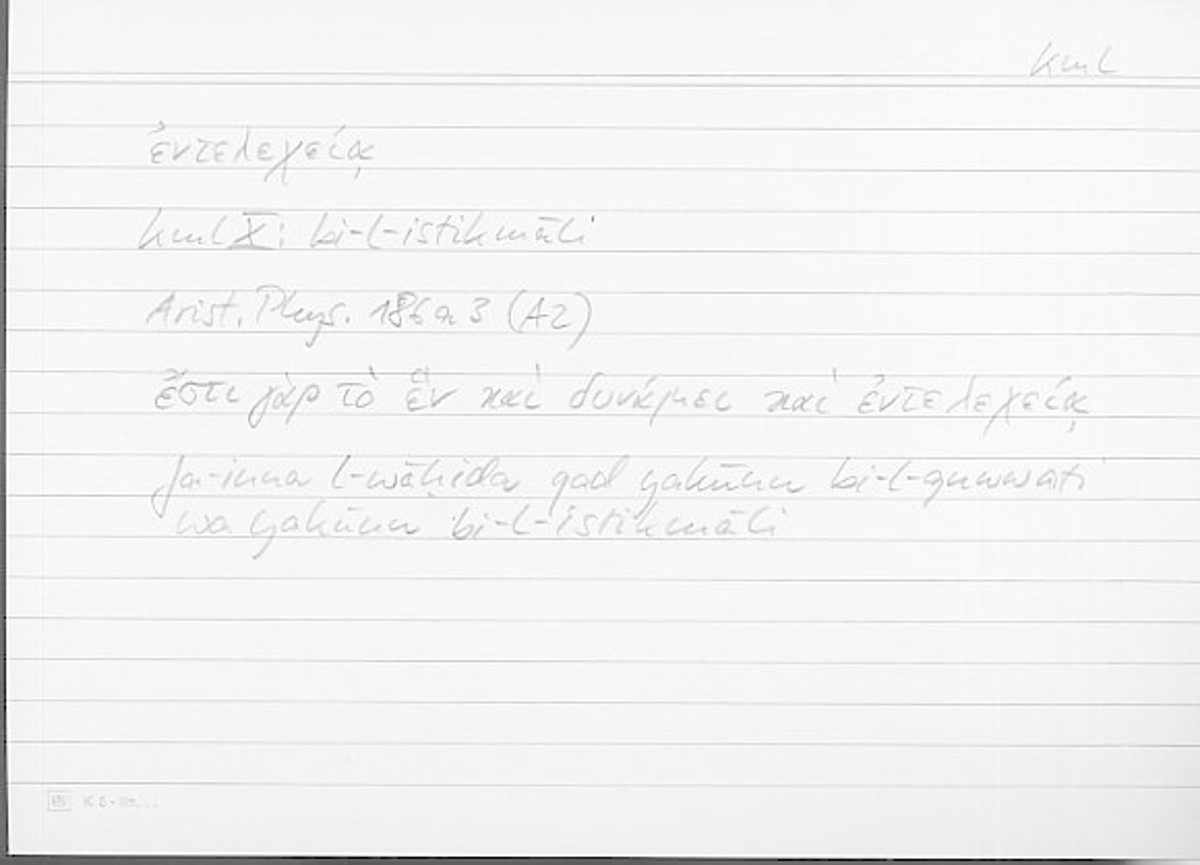 kml
ἐντελεχείᾳ
kml X: bi-l-istikmāli
Arist. Phys. 186 a 3 (A2)
ἔστι γὰρ τὸ ἓν καὶ δυνάμει καὶ ἐντελεχείᾳ
fa-inna l-wāḥida qad yakūnu bi-l-quwwati
wa yakūnu bi-l-istikmāli